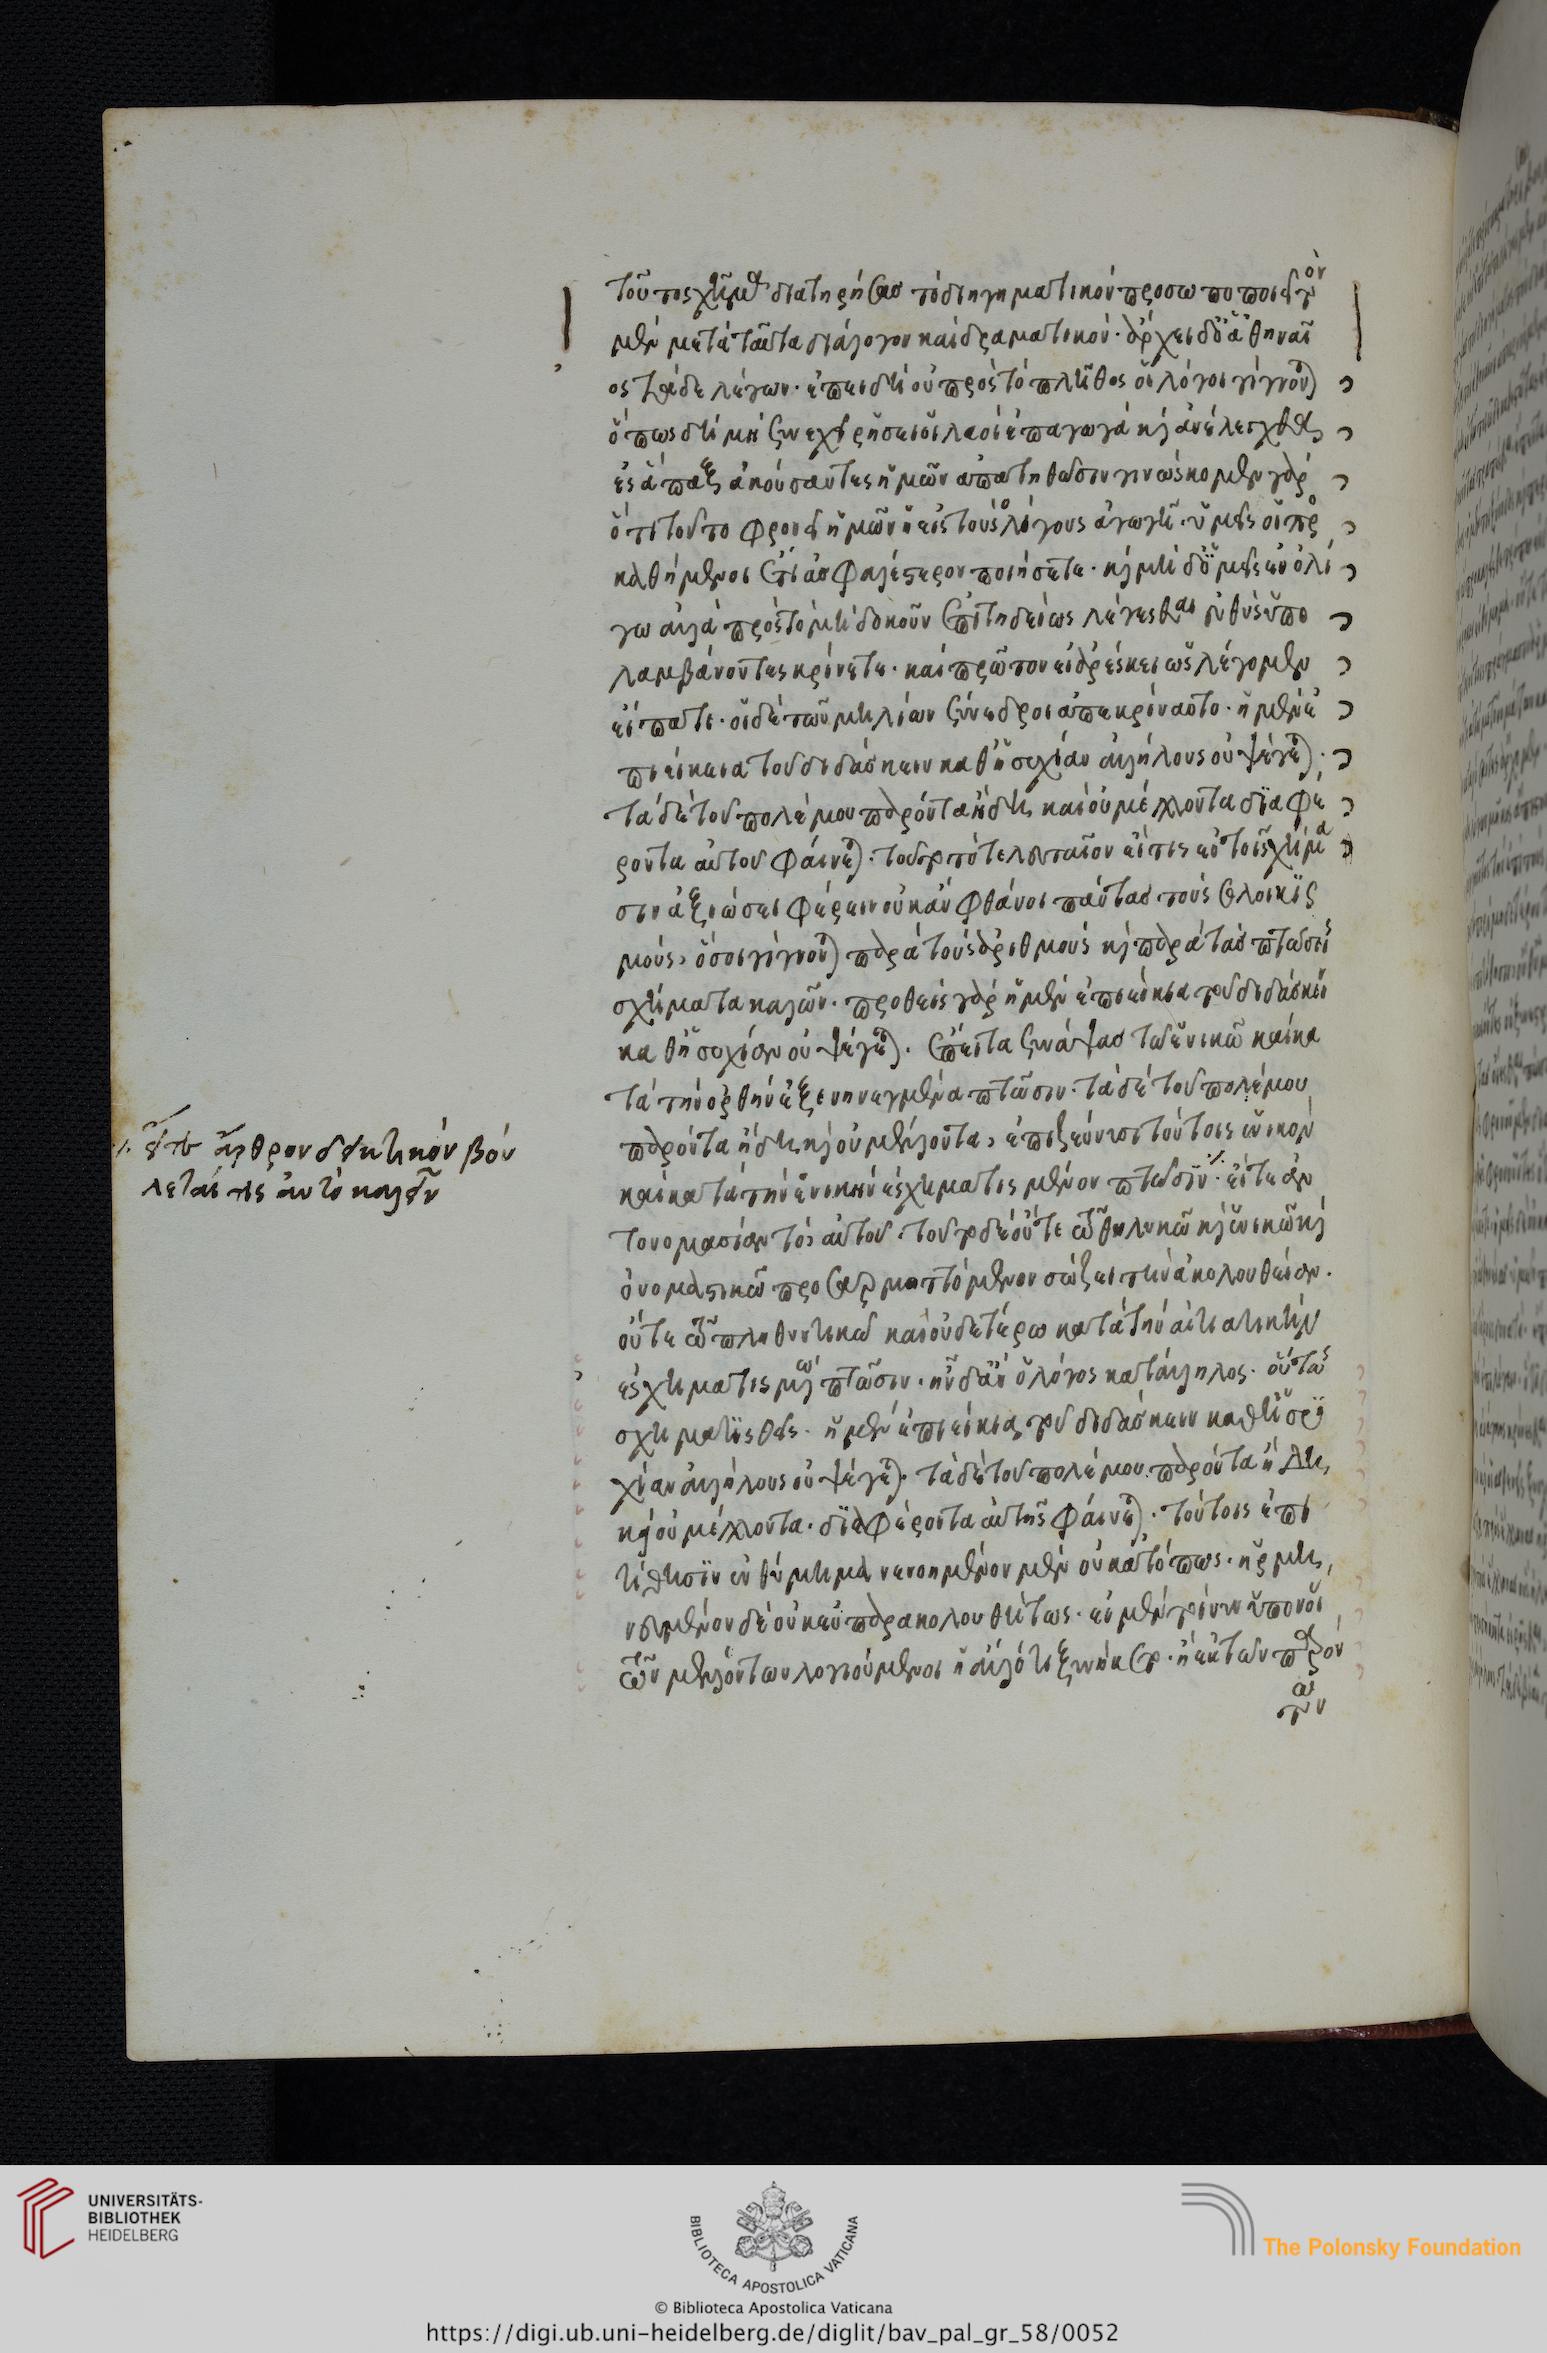 τοῦτο σχῆμα διατηρήσας τὸ διηγηματικὸν προσωποποιεῖ τὸν
μὲν μετὰ ταῦτα διάλογον καὶ δραματικόν· ἄρχει δ᾽ ὁ ἀθηναῖ
ος τάδε λέγων· ἐπειδὴ οὐ πρὸς τὸ πλῆθος οἱ λόγοι γίγνονται
ὅπως δὴ μὴ συνεχεῖ ῥήσει οἱ λαοὶ ἐπαγωγὰ καὶ ἀνέλεγχθα
ἐς ἅπαξ ἀκούσαντες ἡμῶν ἀπατηθῶσιν γινώσκομεν γὰρ
ὅτι τοῦτο φρονεῖ ἡμῶν ἡ εἰς τοὺς ὀλίγους ἀγωγή· ὑμεῖς οἱ προ
καθήμενοι ἔτι ἀσφαλέστερον ποιήσατε· καὶ μὴ δ᾽ ὑμεῖς ἐν ὀλί
γω ἀλλὰ πρὸς τὸ μὴ δοκοῦν ἐπιτηδείως λέγεσθαι εὐθὺς ὑπο
λαμβάνοντες κρίνετε· καὶ πρῶτον εἰ ἀρέσκει ὡς λέγομεν
εἴπατε· οἱ δὲ τῶν μηλίων σύνεδροι ἀπεκρίναντο· ἡ μὲν ἐ
πιείκεια τοῦ διδάσκειν καθ᾽ ἡσυχίαν ἀλλήλους οὐ ψέγεται·
τὰ δὲ τοῦ πολέμου παρόντα ἤδη καὶ οὐ μέλλοντα διαφέ
ροντα αὐτοῦ φαίνεται· τοῦτο τὸ τελευταῖον εἴ τις ἐν τοῖς σχήμα
σιν ἀξιώσει φέρειν οὐκ ἂν φθάνοι πάντας τοὺς σολοικισ
μοὺς, ὅσοι γίγνονται παρὰ τοὺς ἀριθμοὺς καὶ παρὰ τὰς πτώσεις
σχήματα καλῶν· προθεὶς γὰρ ἡ μὲν ἐπιείκεια τοῦ διδάσκειν
καθ᾽ ἡσυχίαν οὐ ψέγεται· ἔπειτα συνάψας τῶ ἑνικῶ καὶ κα
τὰ τὴν ὀρθὴν ἐξενηνεγμένα πτῶσιν· τὰ δὲ τοῦ πολέμου
παρόντα ἤδη καὶ οὐ μέλλοντα, ἐπιζεύγνυσι τούτοις ἑνικὸν
καὶ κατὰ τὴν γενικὴν ἐσχηματισμένον πτῶσιν· εἴτε ἀν
τονομασίαν τὸ, αὐτοῦ· τοῦτο δὲ οὔτε τῶ θηλυκῶ καὶ ἑνικῶ καὶ
ὀνομαστικῶ προσαρμοττόμενον σώζει τὴν ἀκολουθείαν·
οὔτε τῶ πληθυντικῶ καὶ οὐδετέρω κατὰ τὴν αἰτιατικὴν
ἐσχηματισμένω πτῶσιν· ἦν δ᾽ ἂν ὁ λόγος κατάλληλος· οὕτως
σχηματισθείς· ἡ μὲν ἐπιείκεια τοῦ διδάσκειν καθ᾽ ἡσυ
χίαν ἀλλήλους οὐ ψέγεται· τὰ δὲ τοῦ πολέμου παρόντα ἤδη
καὶ οὐ μέλλοντα· διαφέροντα αὐτῆς φαίνεται· τούτοις ἐπι
τίθησιν ἐνθύμημα νενοημένον μὲν οὐκ ἀτόπως· ἡρμη
νευμένον δὲ οὐκ εὐπαρακολουθήτως· εἰ μὲν τοίνυν ὑπονοί
ας τῶν μελλόντων λογιούμενοι ἢ ἄλλό τι ξυνήκετε· ἢ ἐκ τῶν παρόν
των
εἴτε ἄρθρον δεικτικὸν βού
λεταί τις αὐτὸ καλεῖν
UNIVERSITÄTS-
BIBLIOTHEK
HEIDELBERG
BIBLIOTECA APOSTOLICA VATICANA
The Polonsky Foundation
© Biblioteca Apostolica Vaticana
https://digi.ub.uni-heidelberg.de/diglit/bav_pal_gr_58/0052